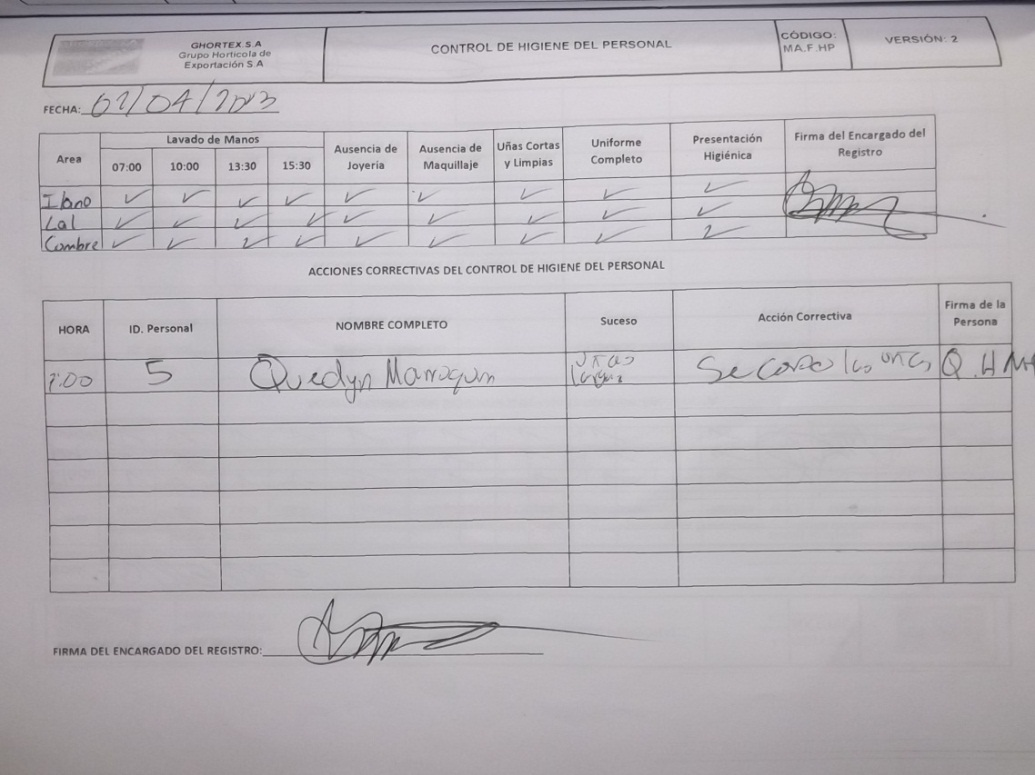 GHORTEX S.A
Grupo Hortícola de
Exportación S.A
CONTROL DE HIGIENE DEL PERSONAL
CÓDIGO:
MA.F.HP
VERSIÓN: 2
FECHA:
Area
Lavado de Manos
07:00 10:00 13:30 15:30
Ausencia de
Joyería
Ausencia de
Maquillaje
Uñas Cortas
y Limpias
Uniforme
Completo
Presentación
Higiénica
Firma del Encargado del
Registro
✓ ✓ ✓ ✓ ✓ ✓ ✓ ✓ ✓
Lal ✓ ✓ ✓ ✓ ✓ ✓ ✓ ✓ ✓
Combre ✓ ✓ ✓ ✓ ✓ ✓ ✓ ✓ ✓
ACCIONES CORRECTIVAS DEL CONTROL DE HIGIENE DEL PERSONAL
HORA
ID. Personal
NOMBRE COMPLETO
Suceso
Acción Correctiva
Firma de la
Persona
7:00 5 Quedyn Marroquin Se Q.HM
FIRMA DEL ENCARGADO DEL REGISTRO: